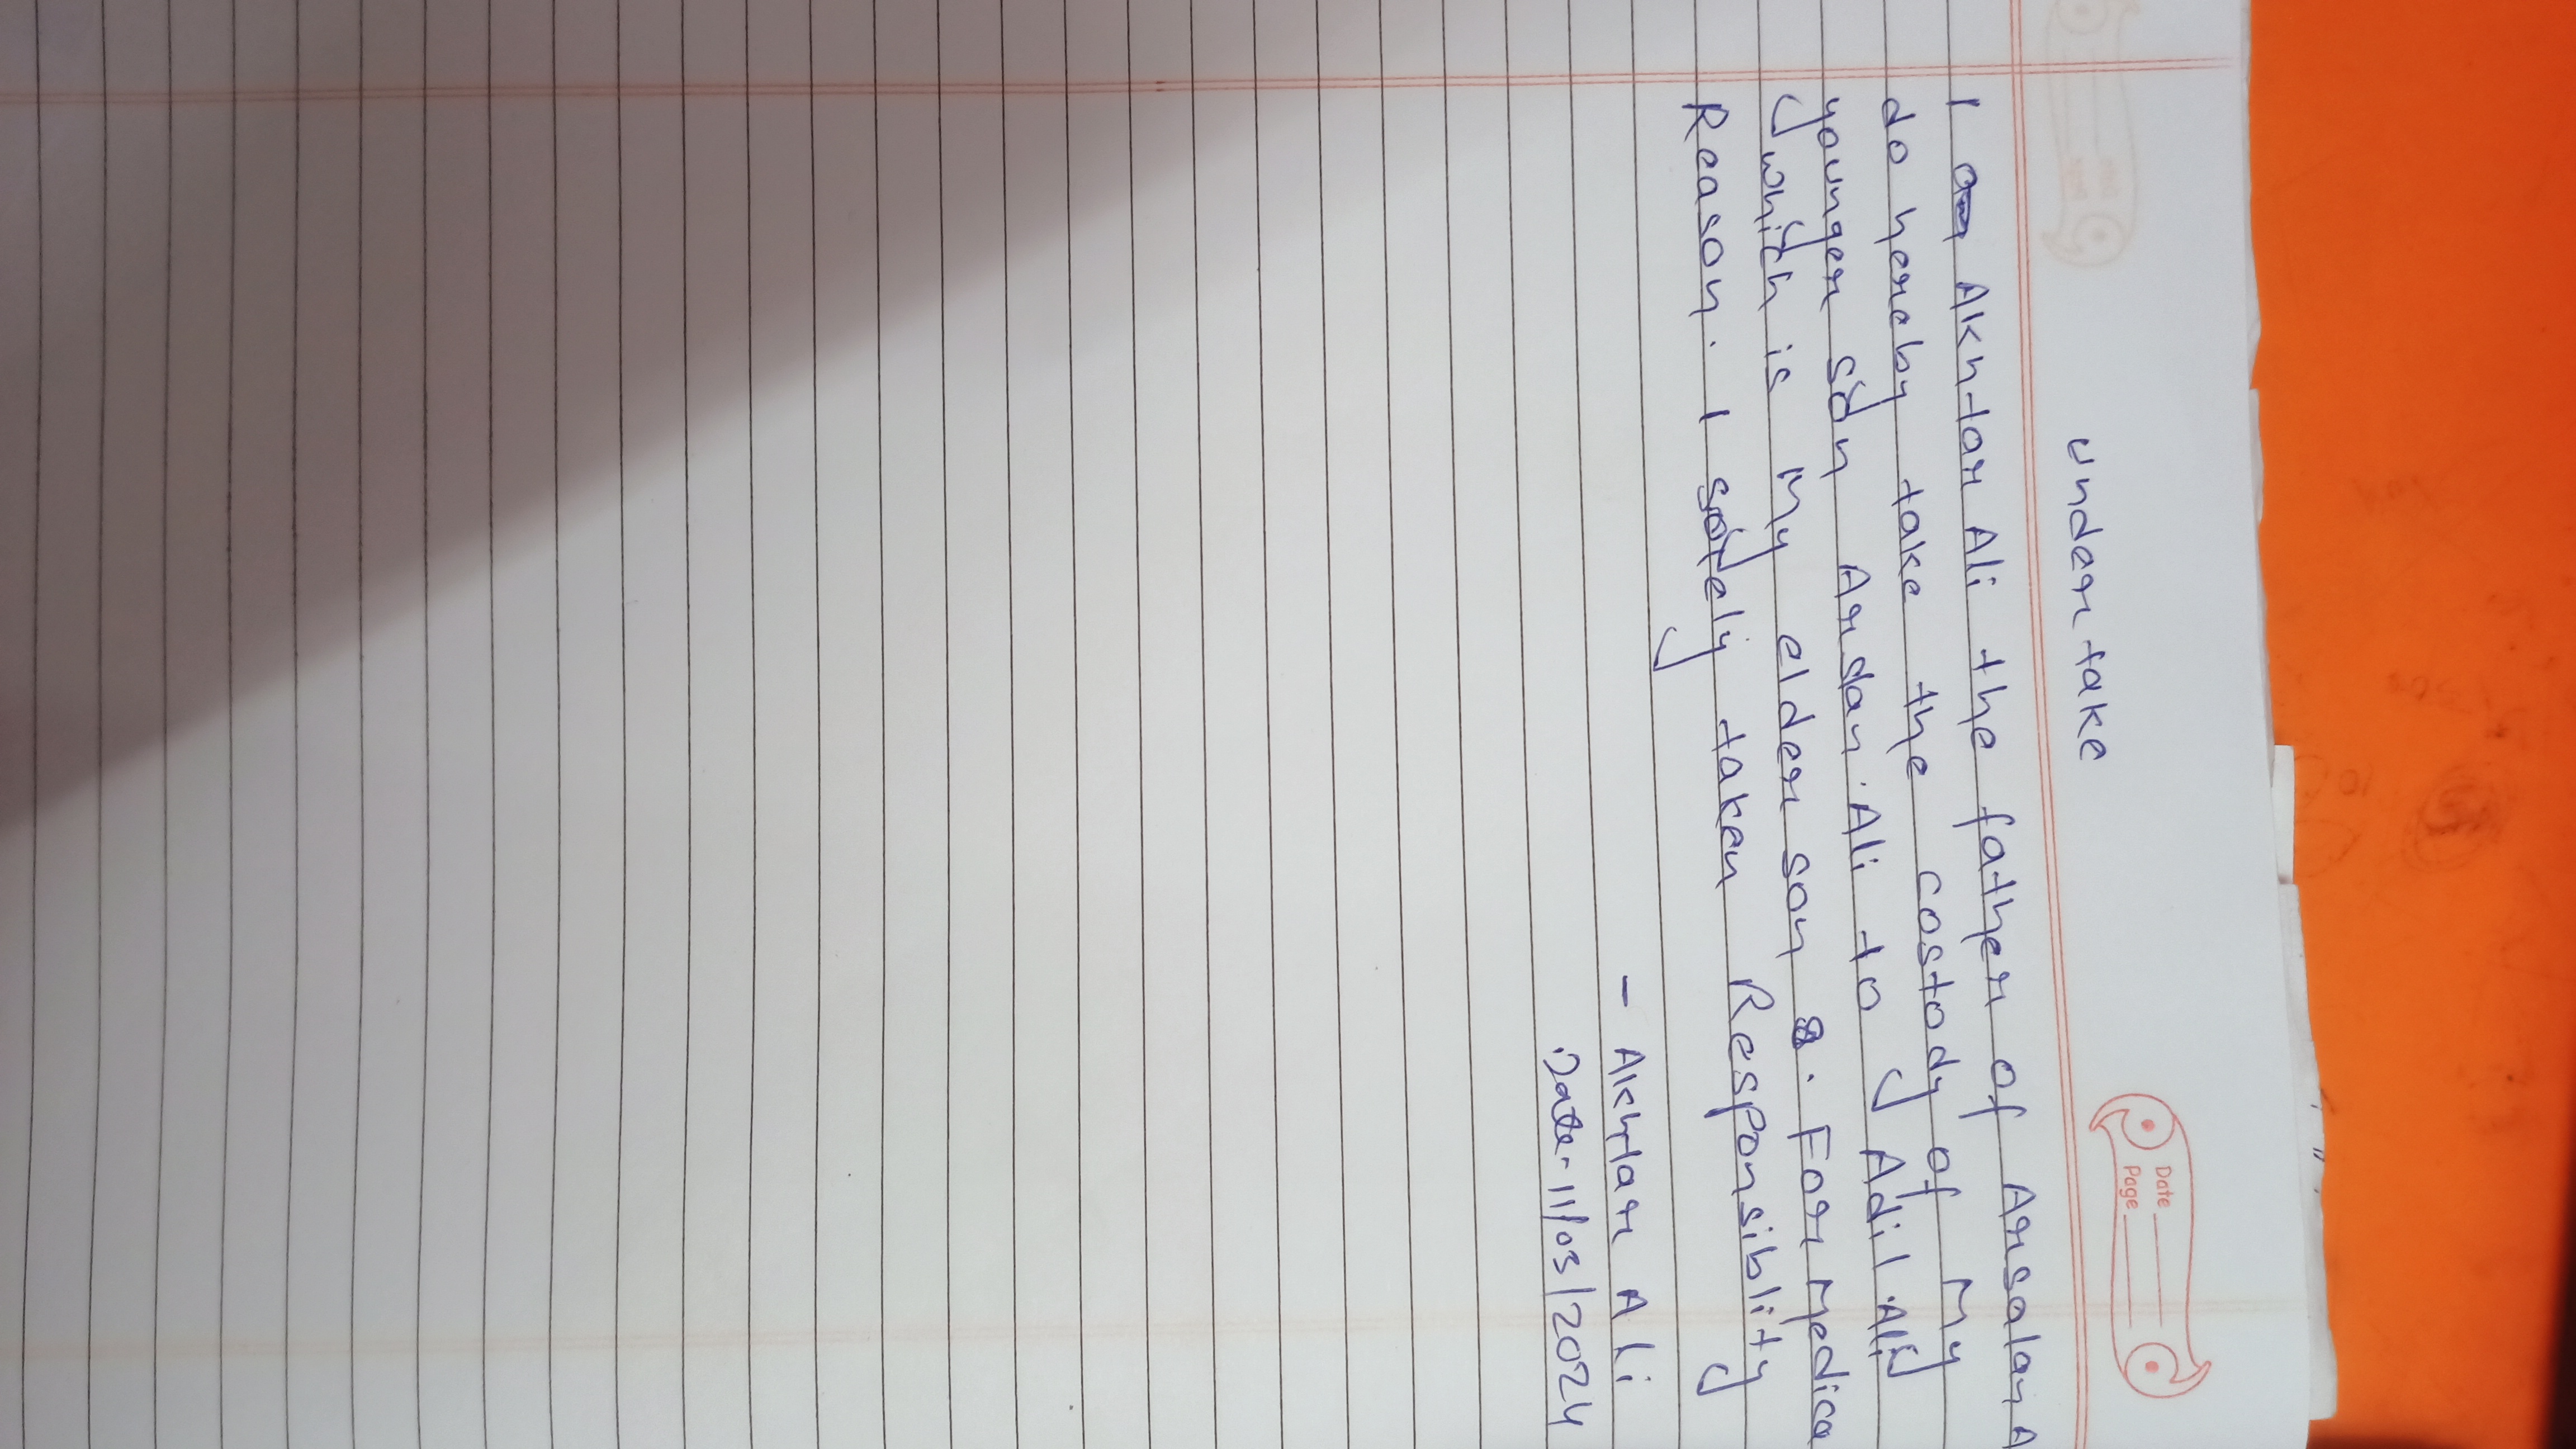 Date
Page
undertake
I am Akhtar Ali the father of Arsalan A
do hereby take the costody of my
younger son Arsalan Ali to Adil Ali
which is my elder son . For medica
Reason. I solely taken Responsiblity
- Akhtar Ali
Date- 11/03/2024